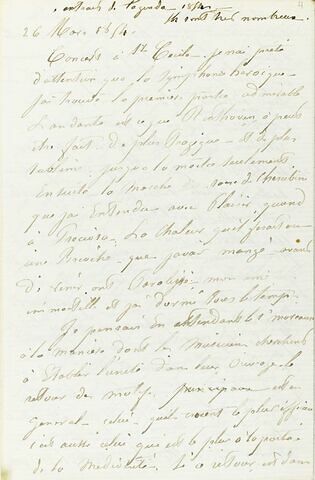 extraits de l'agenda 1854.
ils sont très nombreux
4
26 Mars 1854.
Concert à Ste Cécile. Je n'ai prêté
d'attention que la Symphonie héroïque
J'ai trouvé la première partie admirable
L'andante est ce que Beethoven a peut
être fait de plus tragique et de plus
sublime jusqu'à la moitié seulement.
Ensuite la marche du sacre de Cherubini
que j'ai entendue avec plaisir, quand
à Preciosa, la chaleur qu'il faisait ou
une brioche que j'avais mangé avant
de venir ont paralysé mon âme
immortelle et j'ai dormi tout le temps.
Je pensais en entendant le 1er morceau
à la manière dont les musiciens cherchent
à établir l'unité dans leur ouvrage. Le
retour des motifs principaux est en
général celui qu'ils croient le plus efficace
c'est aussi celui qui est le plus à la portée
de la médiocrité. Si ce retour est dans